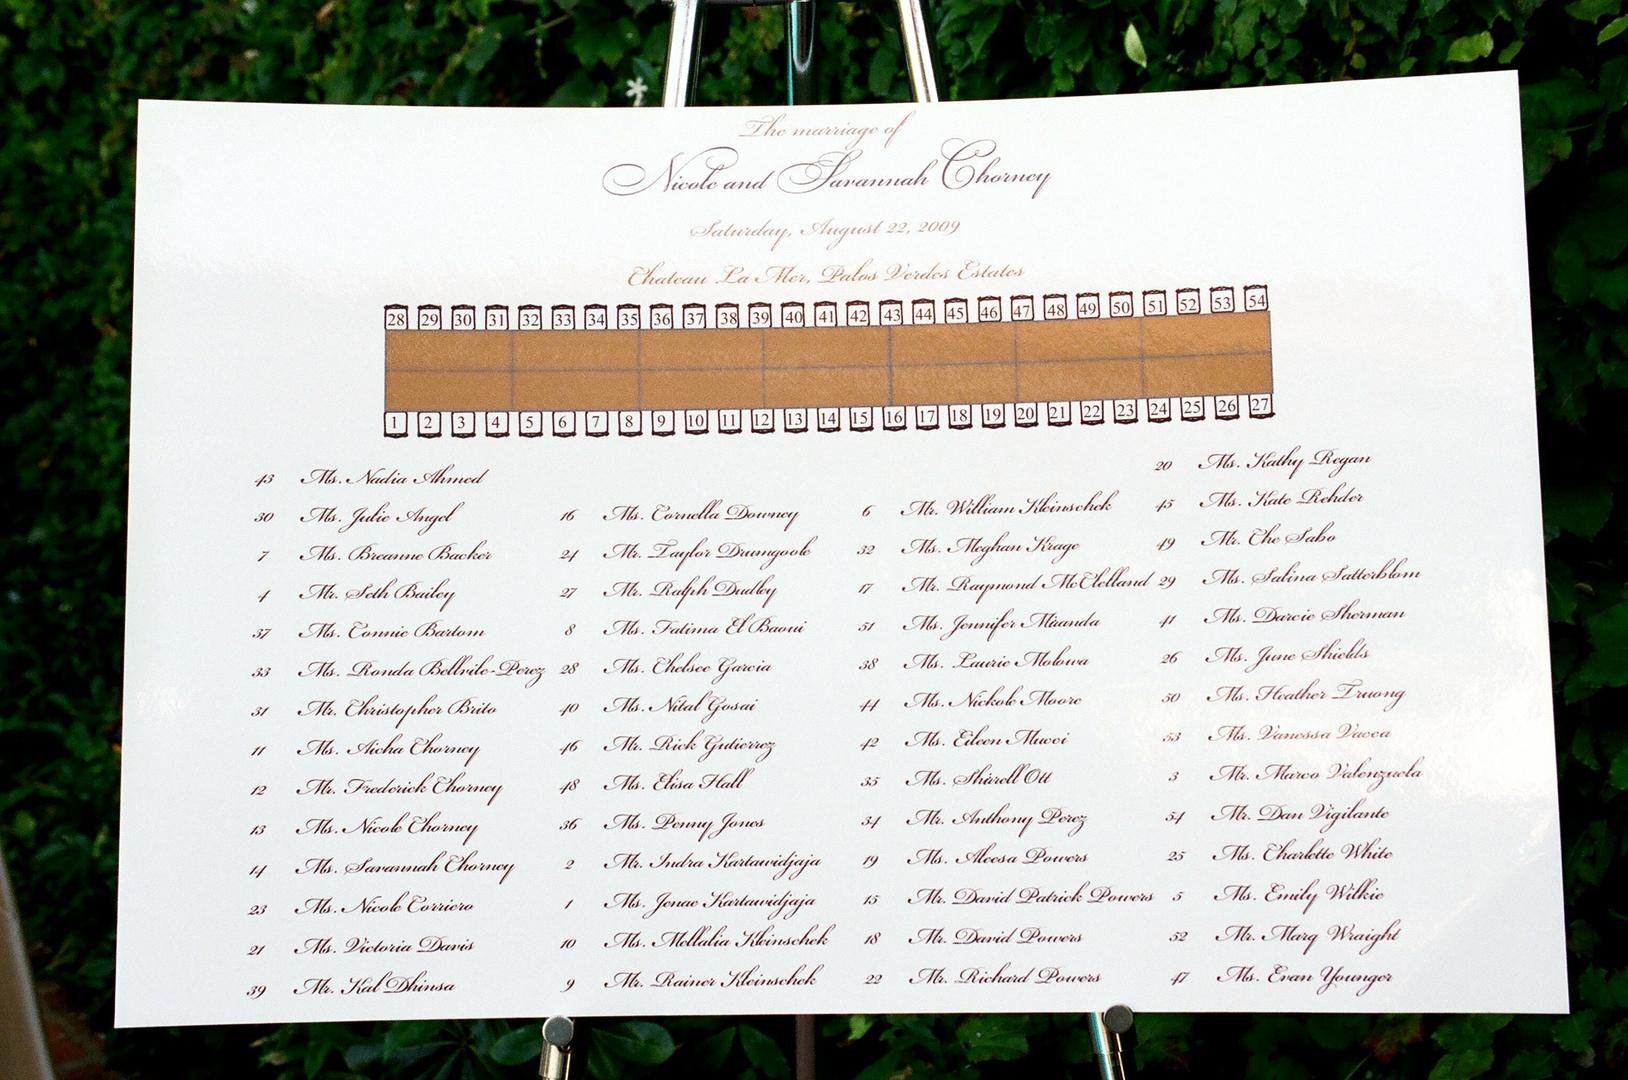 The marriage of
Nicole and Savannah Chorney
Saturday, August 22, 2009
Chateau La Mer, Palos Verdes Estates
28 29 30 31 32 33 34 35 36 37 38 39 40 41 42 43 44 45 46 47 48 49 50 51 52 53 54
1 2 3 4 5 6 7 8 9 10 11 12 13 14 15 16 17 18 19 20 21 22 23 24 25 26 27
43 Ms. Nadia Ahmed
30 Ms. Julie Angel
7 Ms. Breanne Backer
4 Mr. Seth Bailey
37 Ms. Connie Bartom
33 Ms. Ronda Bellvile-Perez
31 Mr. Christopher Brito
11 Ms. Aicha Chorney
12 Mr. Frederick Chorney
13 Ms. Nicole Chorney
14 Ms. Savannah Chorney
23 Ms. Nicole Corriero
21 Ms. Victoria Davis
39 Mr. Kal Dhinsa
16 Ms. Cornella Downey
24 Mr. Taylor Drumgoole
27 Mr. Ralph Dudley
8 Ms. Fatima El Baoui
28 Ms. Chelsee Garcia
40 Ms. Nital Gosai
46 Mr. Rick Gutierrez
48 Ms. Elisa Hall
36 Ms. Penny Jones
2 Mr. Indra Kartawidjaja
1 Ms. Jenae Kartawidjaja
10 Ms. Mellalia Kleinschek
9 Mr. Rainer Kleinschek
6 Mr. William Kleinschek
32 Ms. Meghan Krage
17 Mr. Raymond McClelland
51 Ms. Jennifer Miranda
38 Ms. Laurie Molowa
44 Ms. Nickole Moore
42 Ms. Eileen Mucci
35 Ms. Sharell Ott
34 Mr. Anthony Perez
19 Ms. Aleesa Powers
15 Mr. David Patrick Powers
18 Mr. David Powers
22 Mr. Richard Powers
20 Ms. Kathy Regan
45 Ms. Kate Rehder
49 Mr. Che Sabo
29 Ms. Salina Satterblom
41 Ms. Darcie Sherman
26 Ms. June Shields
50 Ms. Heather Truong
53 Ms. Vanessa Vacca
3 Mr. Marco Valenzuela
54 Mr. Dan Vigilante
25 Ms. Charlette White
5 Ms. Emily Wilkie
52 Mr. Marq Wraight
47 Ms. Evan Younger